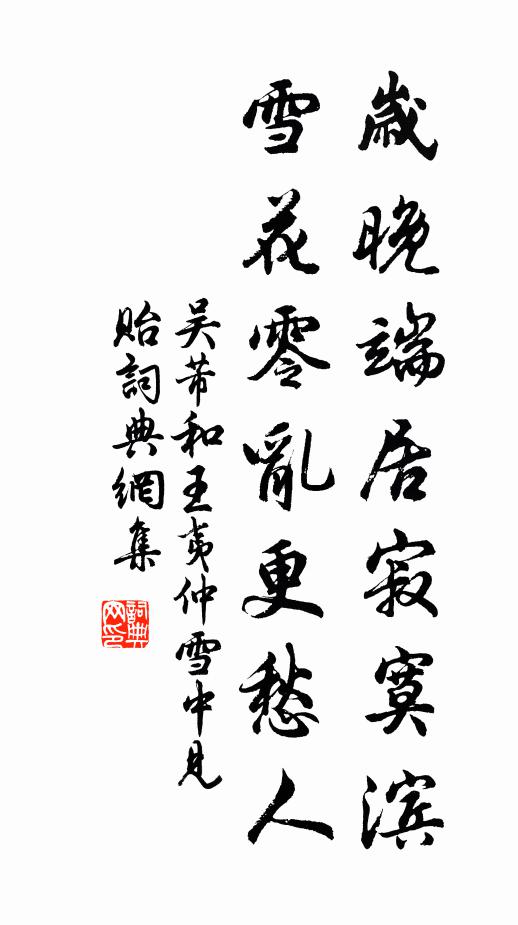 歲晚端居寂寞濱
雪花零亂更愁人
吴芾和王夷仲雪中見
貽詞典網集
詞典網印